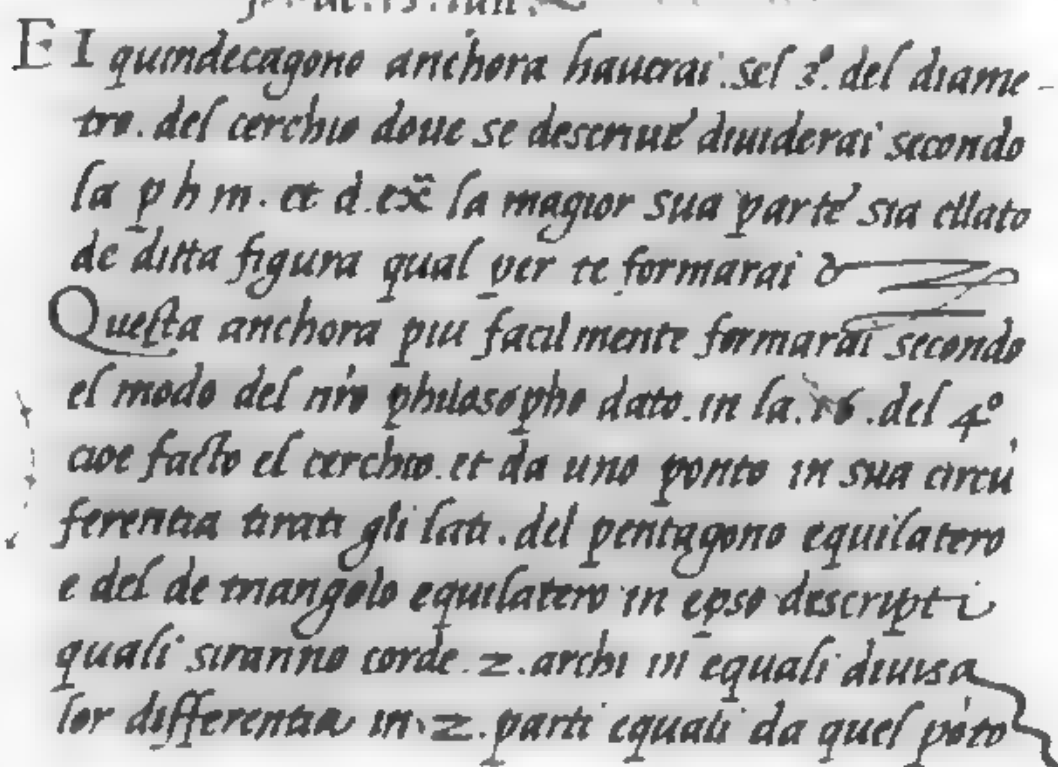 El quindecagono anchora hauerai .sel 3º. del diame-
tro. del cerchio doue se descriue diuiderai secondo
la p h m. et d. ex̃ la magior sua parte sia ellato
de ditta figura qual per te formarai &
Questa anchora piu facilmente formarai secondo
el modo del nr̃o philosopho dato. in la. 16 .del 4º
cioe facto el cerchio. et da uno ponto in sua circũ
ferentia tirati gli lati. del pentagono equilatero
e del de triangolo equilatero in epso descripti
quali siranno corde .2. archi in equali diuisa
lor differentia in .2. parti equali da quel põto